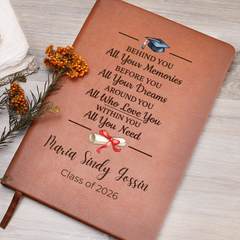 BEHIND YOU
All Your Memories
BEFORE YOU
All Your Dreams
AROUND YOU
All Who Love You
WITHIN YOU
All You Need
Maria Sindy Jossin
Class of 2026